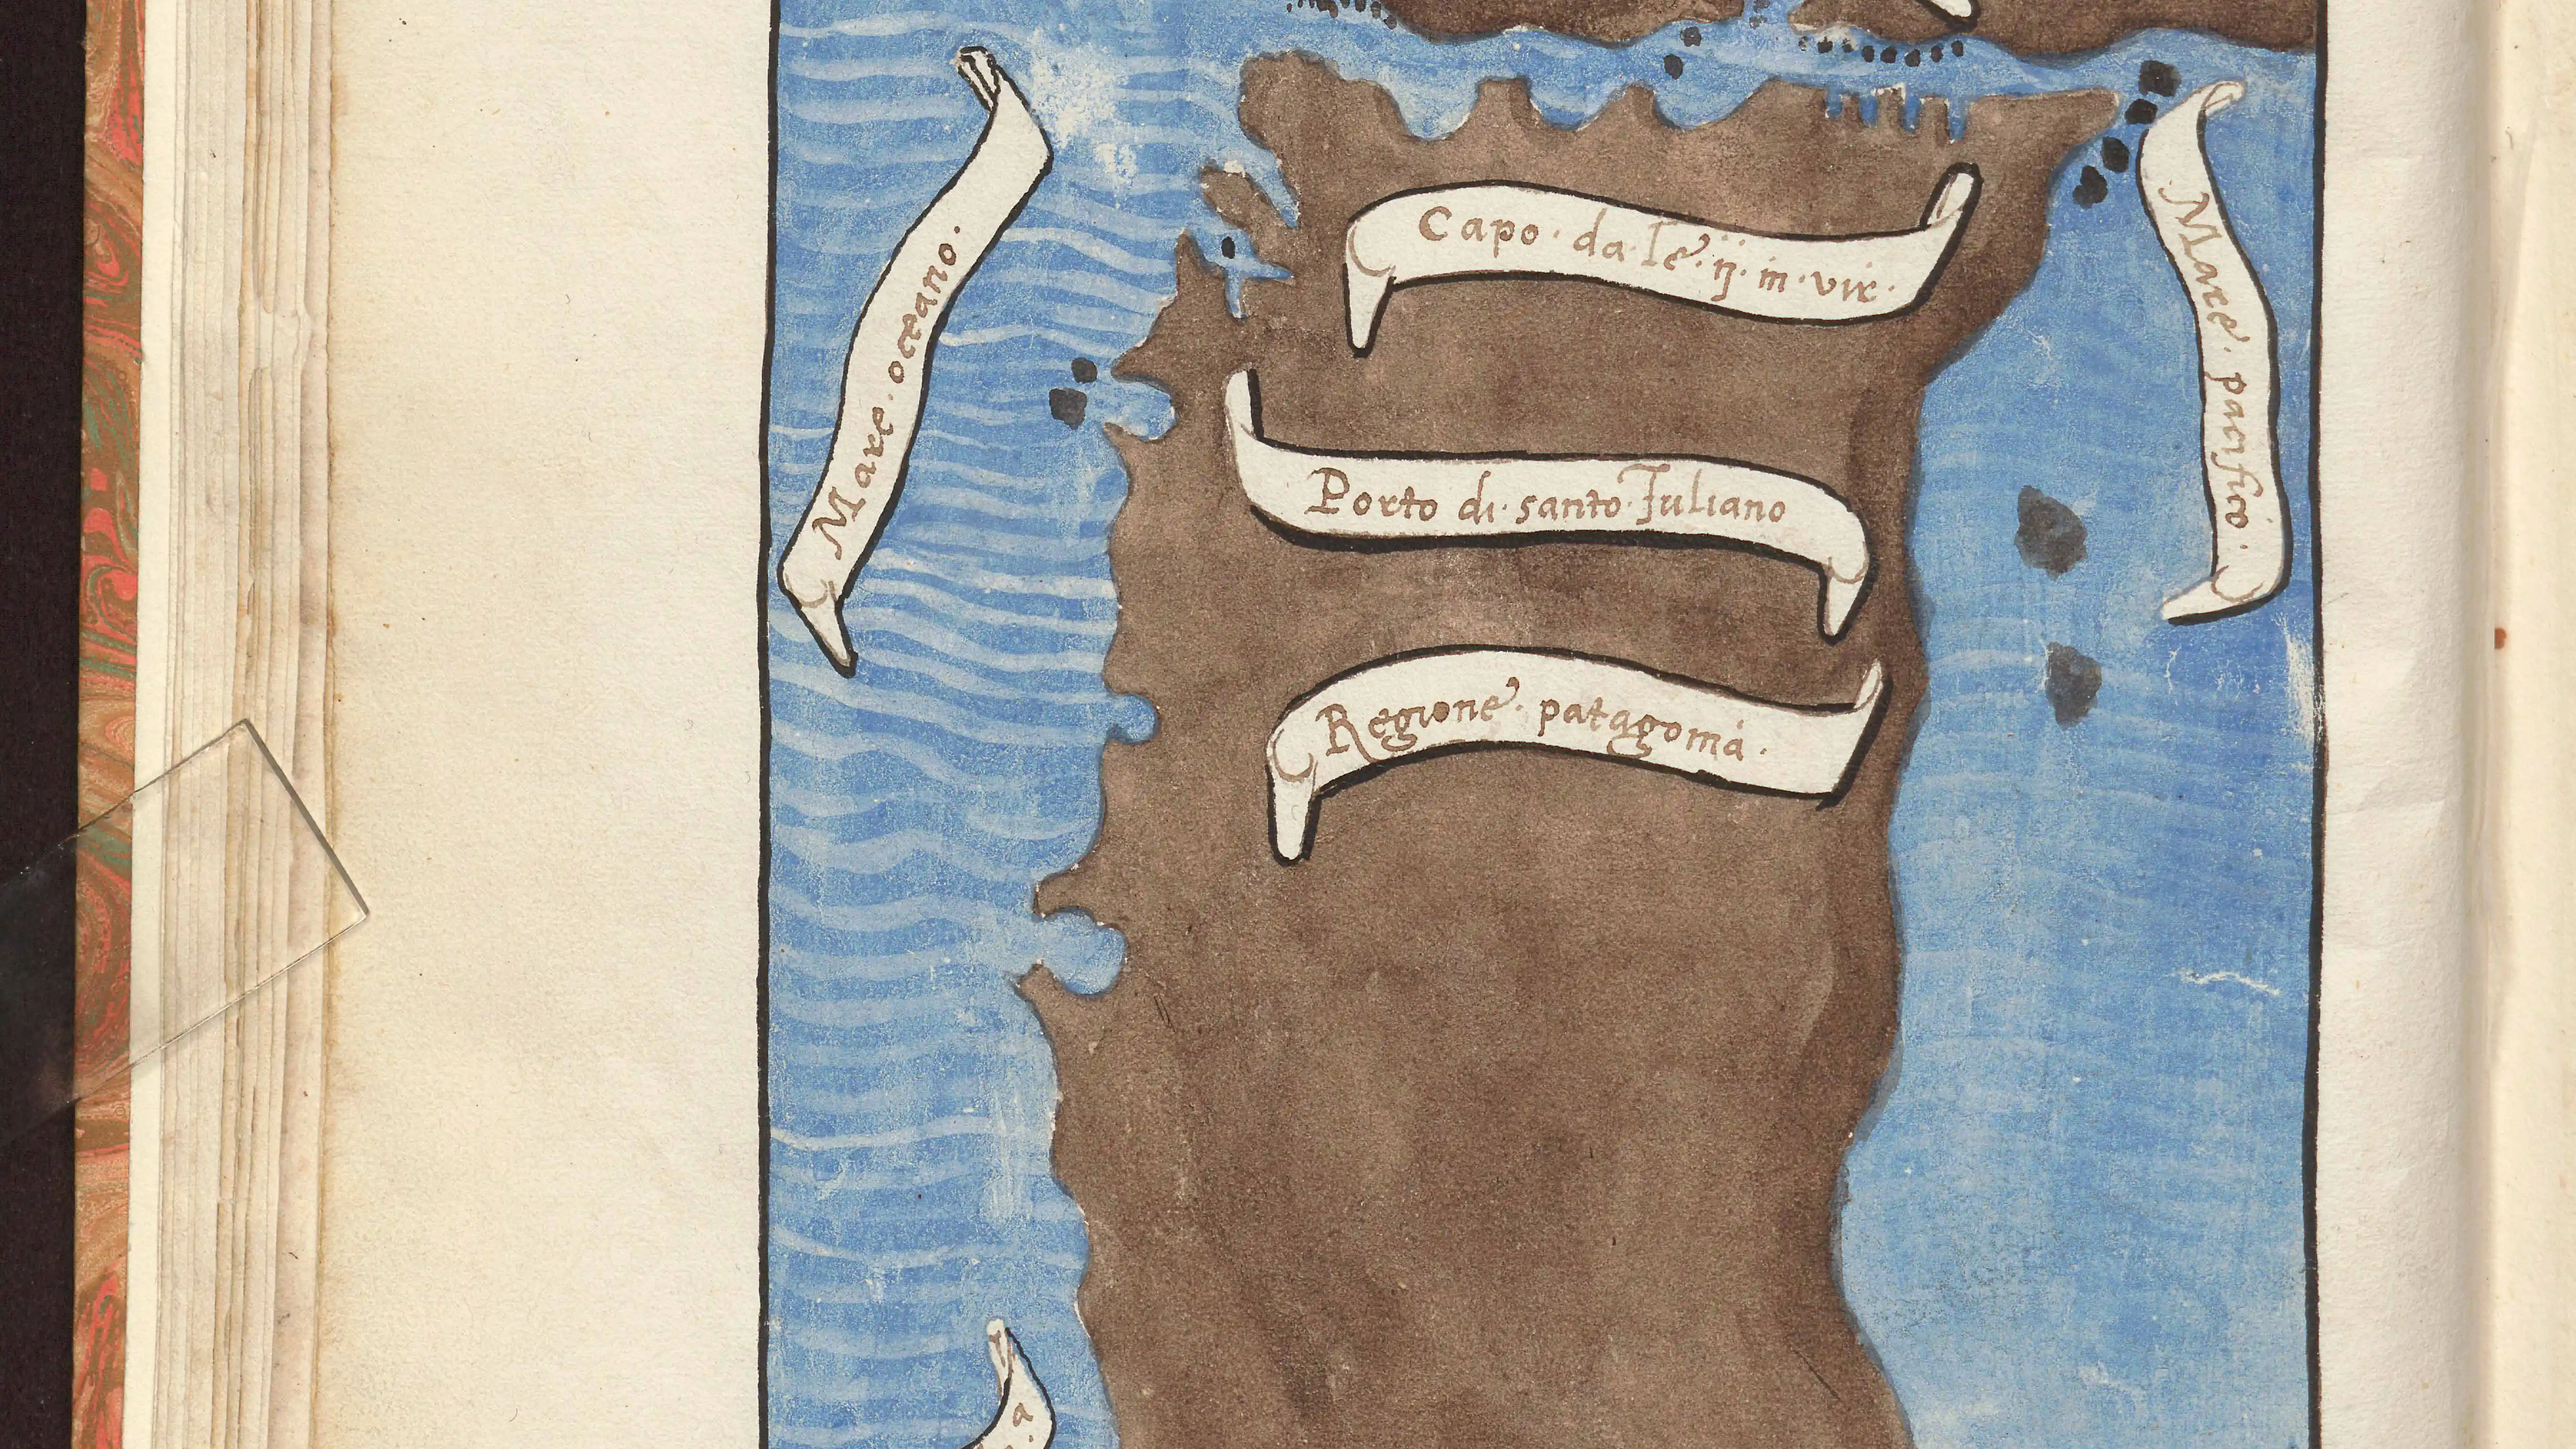 Mare · oceano ·
Capo · da · le · ij · m · vir ·
Mare · pacifico ·
Porto di · santo · Iuliano
Regione · patagonia ·
a